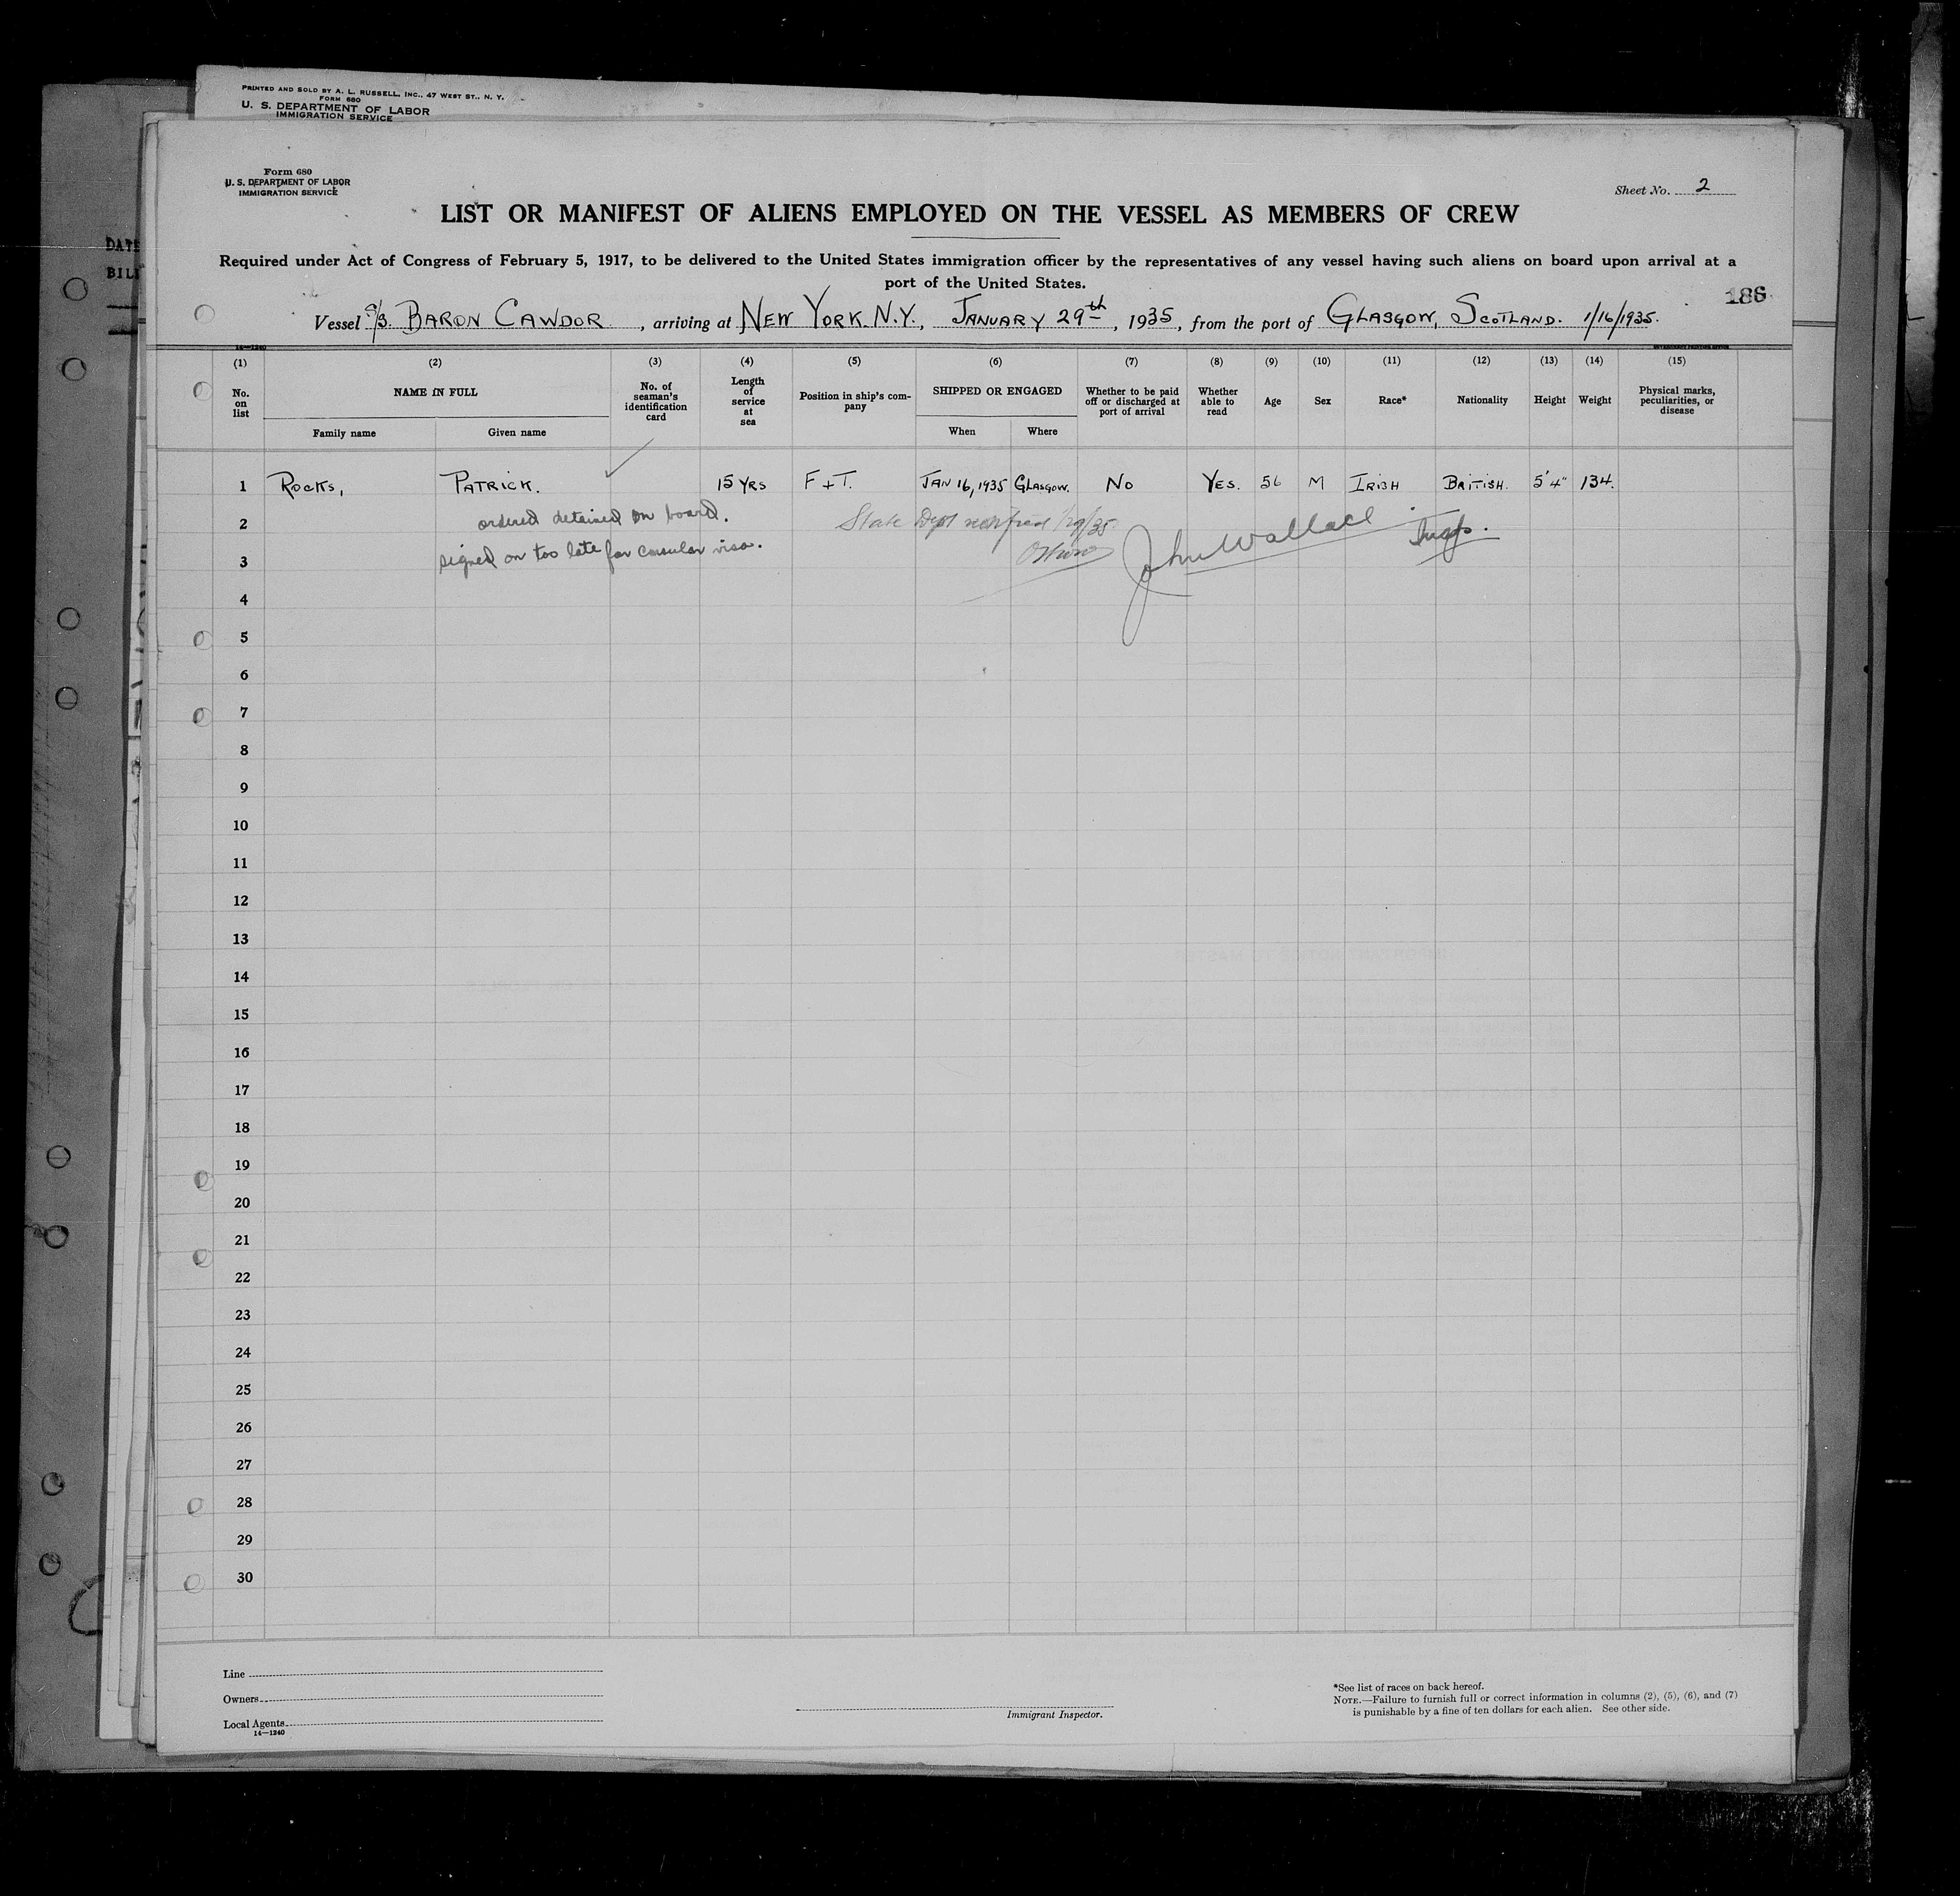 PRINTED AND SOLD BY A. L. RUSSELL, INC., 47 WEST ST., N. Y.
FORM 680
U. S. DEPARTMENT OF LABOR
IMMIGRATION SERVICE
DATE
BILL
Form 680
U. S. DEPARTMENT OF LABOR
IMMIGRATION SERVICE
Sheet No. 2
LIST OR MANIFEST OF ALIENS EMPLOYED ON THE VESSEL AS MEMBERS OF CREW
Required under Act of Congress of February 5, 1917, to be delivered to the United States immigration officer by the representatives of any vessel having such aliens on board upon arrival at a
port of the United States.
186
Vessel S/S. BARON CAWDOR, arriving at NEW YORK. N.Y., JANUARY 29th, 1935, from the port of GLASGOW, SCOTLAND. 1/16/1935.
14—1240
(1) (2) (3) (4) (5) (6) (7) (8) (9) (10) (11) (12) (13) (14) (15)
No. on list NAME IN FULL No. of seaman's identification card Length of service at sea Position in ship's company SHIPPED OR ENGAGED Whether to be paid off or discharged at port of arrival Whether able to read Age Sex Race* Nationality Height Weight Physical marks, peculiarities, or disease
Family name Given name When Where
1 ROCKS, PATRICK. 15 YRS F+T. JAN 16, 1935 GLASGOW. NO YES. 56 M IRISH BRITISH. 5'4" 134.
2 ordered detained on board. State Dept notified 1/29/35 John Wallace
3 signed on too late for consular visa.
4
5
6
7
8
9
10
11
12
13
14
15
16
17
18
19
20
21
22
23
24
25
26
27
28
29
30
Line
Owners
Local Agents
14—1240
Immigrant Inspector.
*See list of races on back hereof.
NOTE.—Failure to furnish full or correct information in columns (2), (5), (6), and (7)
is punishable by a fine of ten dollars for each alien. See other side.